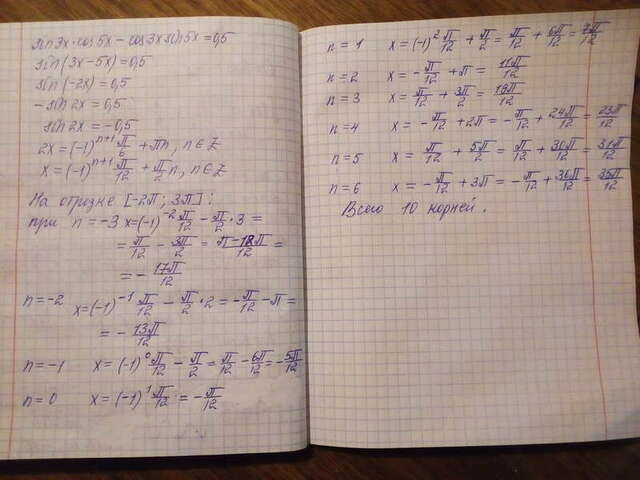 sin3x·cos5x - cos3x sin5x = 0,5
sin(3x-5x) = 0,5
sin(-2x) = 0,5
-sin2x = 0,5
sin2x = -0,5
2x = (-1)^{n+1} π/6 + πn, n∈Z
x = (-1)^{n+1} π/12 + π/2 n, n∈Z
На отрезке [-2π; 3π]:
при n = -3 x = (-1)^{-2} π/12 - π/2 · 3 =
= π/12 - 3π/2 = π-18π/12 =
= - 17π/12
n = -2 x = (-1)^{-1} π/12 - π/2 · 2 = - π/12 - π =
= - 13π/12
n = -1 x = (-1)^0 π/12 - π/2 = π/12 - 6π/12 = - 5π/12
n = 0 x = (-1)^1 π/12 = - π/12
n = 1 x = (-1)^2 π/12 + π/2 = π/12 + 6π/12 = 7π/12
n = 2 x = - π/12 + π = 11π/12
n = 3 x = π/12 + 3π/2 = 19π/12
n = 4 x = - π/12 + 2π = - π/12 + 24π/12 = 23π/12
n = 5 x = π/12 + 5π/2 = π/12 + 30π/12 = 31π/12
n = 6 x = - π/12 + 3π = - π/12 + 36π/12 = 35π/12
Всего 10 корней.